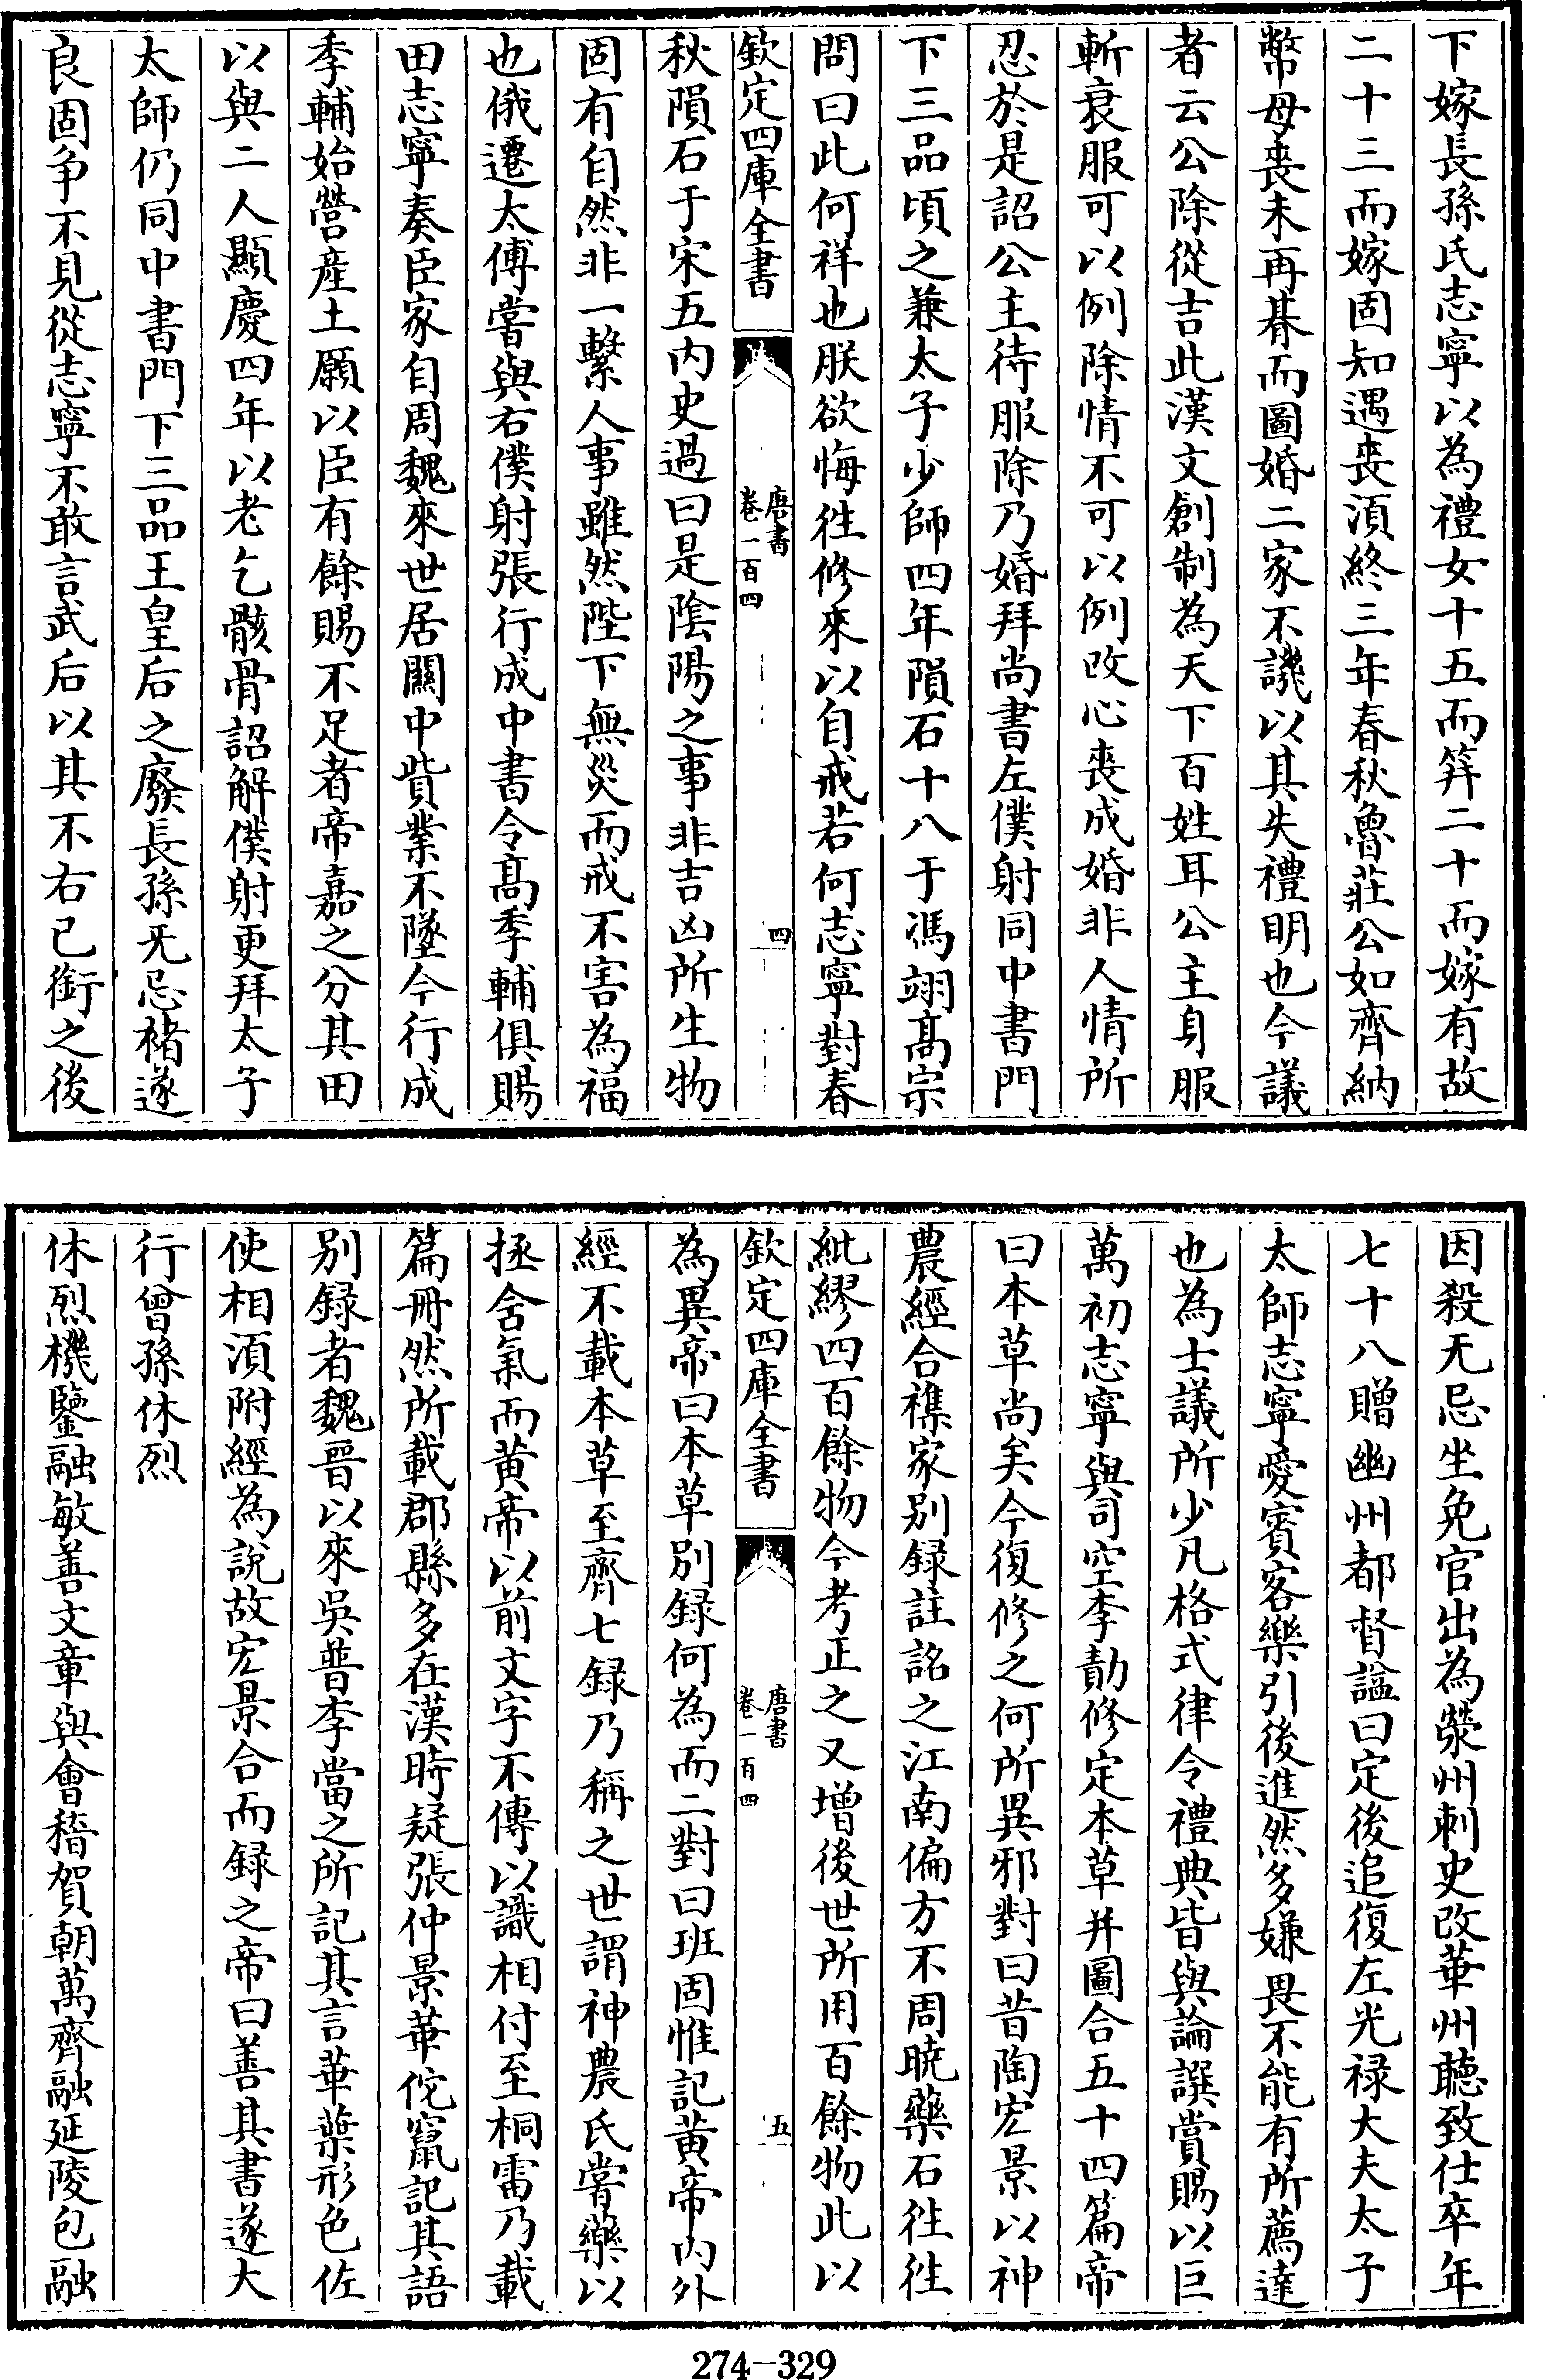 下嫁長孫氏志寧以為禮女十五而笄二十而嫁有故
二十三而嫁固知遇喪須終三年春秋魯莊公如齊納
幣母喪未再朞而圖婚二家不譏以其失禮明也今議
者云公除從吉此漢文創制為天下百姓耳公主身服
斬衰服可以例除情不可以例改心喪成婚非人情所
忍於是詔公主待服除乃婚拜尚書左僕射同中書門
下三品頃之兼太子少師四年隕石十八于馮翊髙宗
問曰此何祥也朕欲悔徃修來以自戒若何志寧對春
欽定四庫全書
唐書
卷一百四
四
秋隕石于宋五内史過曰是陰陽之事非吉凶所生物
固有自然非一繫人事雖然陛下無災而戒不害為福
也俄遷太傅嘗與右僕射張行成中書令髙季輔俱賜
田志寧奏臣家自周魏來世居關中貲業不墜今行成
季輔始營産土願以臣有餘賜不足者帝嘉之分其田
以與二人顯慶四年以老乞骸骨詔解僕射更拜太子
太師仍同中書門下三品王皇后之廢長孫无忌褚遂
良固争不見從志寧不敢言武后以其不右已銜之後
因殺无忌坐免官出為滎州刺史改華州聽致仕卒年
七十八贈幽州都督諡曰定後追復左光禄大夫太子
太師志寧愛賓客樂引後進然多嫌畏不能有所薦達
也為士議所少凡格式律令禮典皆與論譔賞賜以巨
萬初志寧與司空李勣修定本草并圖合五十四篇帝
曰本草尚矣今復修之何所異邪對曰昔陶宏景以神
農經合襍家别録註詺之江南偏方不周曉藥石徃徃
紕繆四百餘物今考正之又增後世所用百餘物此以
欽定四庫全書
唐書
卷一百四
五
為異帝曰本草别録何為而二對曰班固惟記黄帝内外
經不載本草至齊七録乃稱之世謂神農氏嘗藥以
拯含氣而黄帝以前文字不傳以識相付至桐雷乃載
篇册然所載郡縣多在漢時疑張仲景華佗竄記其語
别録者魏晉以來吳普李當之所記其言華葉形色佐
使相須附經為說故宏景合而録之帝曰善其書遂大
行曾孫休烈
休烈機鑒融敏善文章與會稽賀朝萬齊融延陵包融
274-329